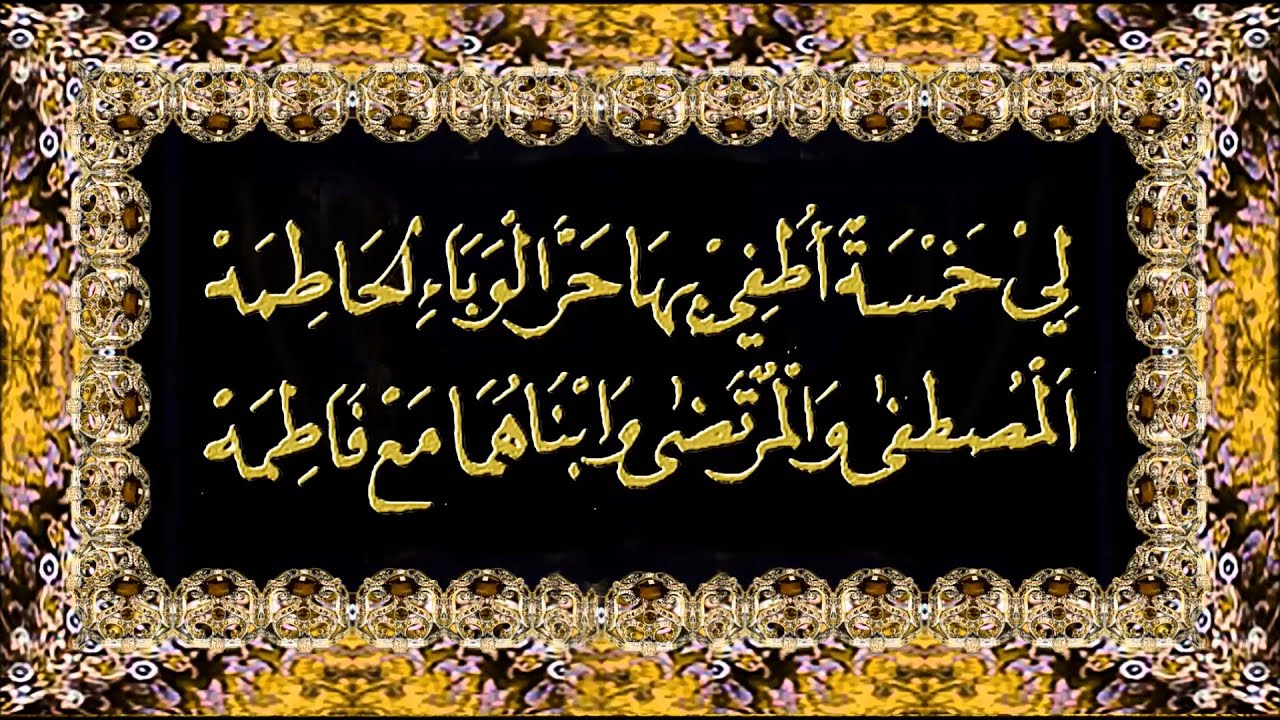 لِيْ خَمْسَةٌ أُطْفِيْ بِهَا حَرَّ الْوَبَاءِ الْحَاطِمَهْ
اَلْمُصْطَفٰى وَالْمُرْتَضٰى وَابْنَاهُمَا مَعْ فَاطِمَهْ